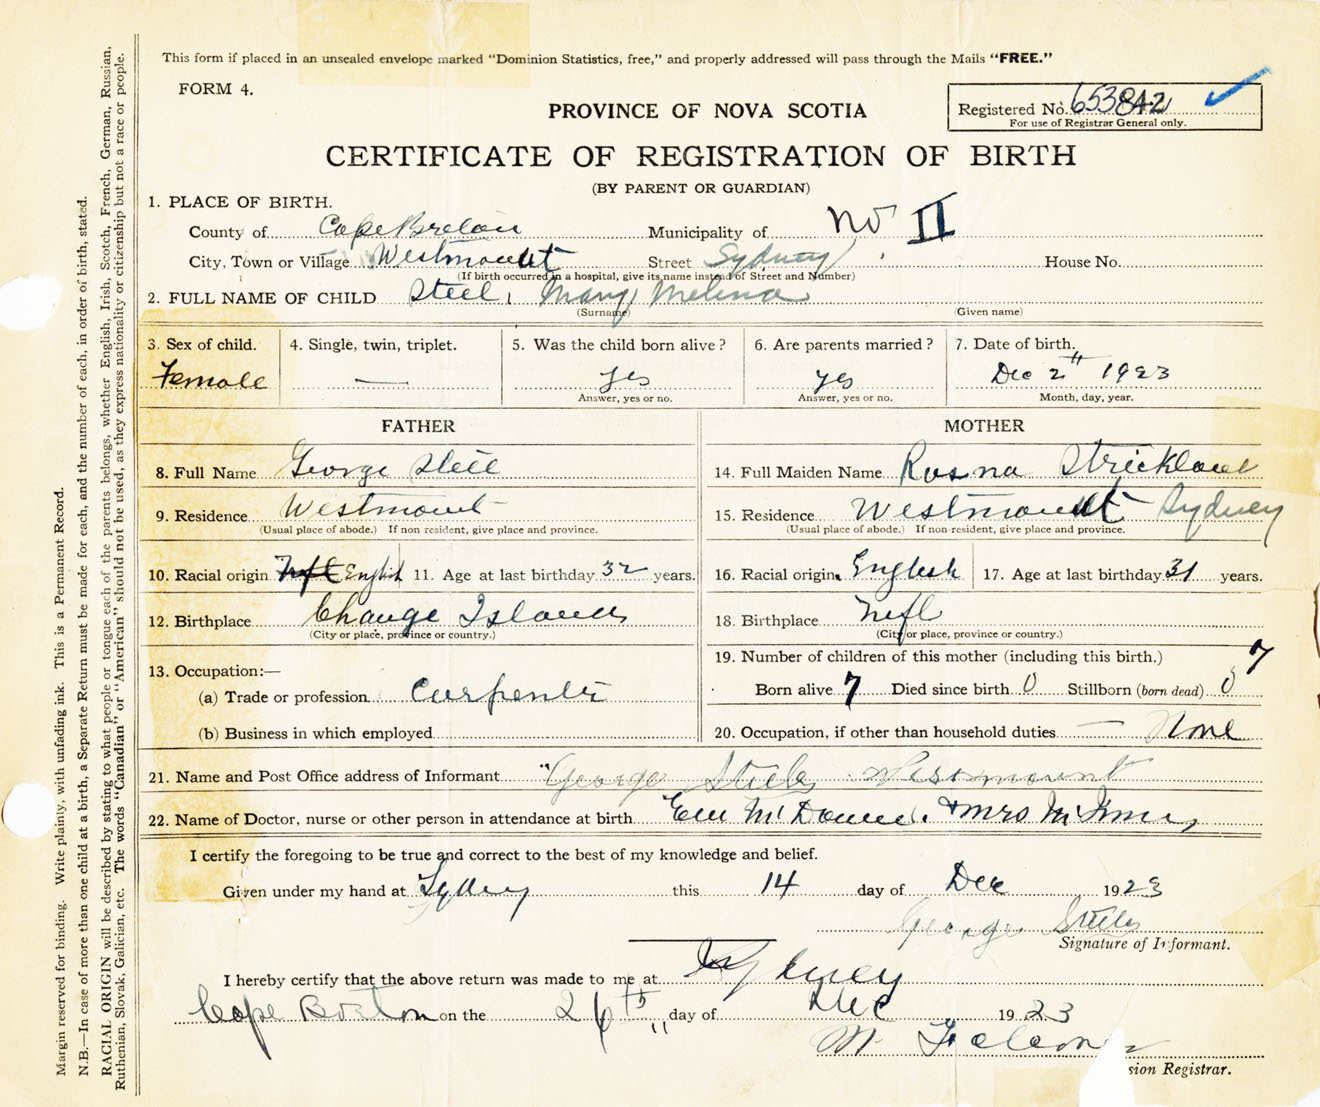 This form if placed in an unsealed envelope marked "Dominion Statistics, free," and properly addressed will pass through the Mails "FREE."
FORM 4.
PROVINCE OF NOVA SCOTIA
Registered No. 653842
For use of Registrar General only.
CERTIFICATE OF REGISTRATION OF BIRTH
(BY PARENT OR GUARDIAN)
1. PLACE OF BIRTH.
County of Cape Breton Municipality of No II
City, Town or Village Westmount Street Sydney House No.
(If birth occurred in a hospital, give its name instead of Street and Number)
2. FULL NAME OF CHILD Steel, Mary Melina
(Surname) (Given name)
3. Sex of child. 4. Single, twin, triplet. 5. Was the child born alive? 6. Are parents married? 7. Date of birth.
Female — yes yes Dec 2th 1923
Answer, yes or no. Answer, yes or no. Month, day, year.
FATHER
8. Full Name George Steel
9. Residence Westmount
(Usual place of abode.) If non resident, give place and province.
10. Racial origin Nfl English 11. Age at last birthday 32 years.
12. Birthplace Change Islands
(City or place, province or country.)
13. Occupation:—
(a) Trade or profession Carpenter
(b) Business in which employed
MOTHER
14. Full Maiden Name Rosna Strickland
15. Residence Westmount Sydney
(Usual place of abode.) If non-resident, give place and province.
16. Racial origin English 17. Age at last birthday 31 years.
18. Birthplace Nfl
(City or place, province or country.)
19. Number of children of this mother (including this birth.) 7
Born alive 7 Died since birth 0 Stillborn (born dead) 0
20. Occupation, if other than household duties — None
21. Name and Post Office address of Informant George Steele Westmount
22. Name of Doctor, nurse or other person in attendance at birth McDonald & Mrs
I certify the foregoing to be true and correct to the best of my knowledge and belief.
Given under my hand at Sydney this 14 day of Dec 1923
George Steele
Signature of Informant.
I hereby certify that the above return was made to me at Sydney
Cape Breton on the 26th day of Dec 1923
sion Registrar.
Margin reserved for binding. Write plainly, with unfading ink. This is a Permanent Record.
N.B.—In case of more than one child at a birth, a Separate Return must be made for each, and the number of each, in order of birth, stated.
RACIAL ORIGIN will be described by stating to what people or tongue each of the parents belongs, whether English, Irish, Scotch, French, German, Russian,
Ruthenian, Slovak, Galician, etc. The words "Canadian" or "American" should not be used, as they express nationality or citizenship but not a race or people.